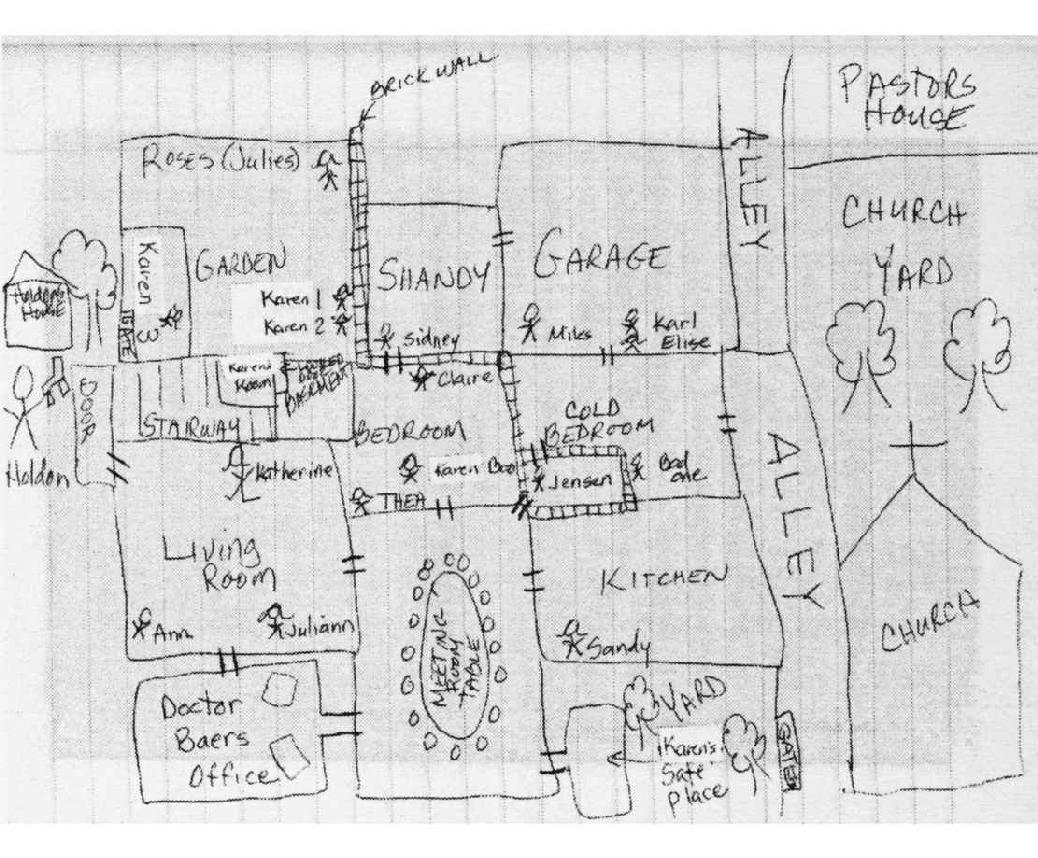 BRICK WALL
PASTORS
HOUSE
ROSES (Julies)
ALLEY
CHURCH
YARD
GARDEN
SHANDY
GARAGE
Karen 3
Holdons
House
Karen 1
Karen 2
GATE
Sidney
Miles
Karl
Elise
Karens
Room
LOCKED
DOOR
BASEMENT
Claire
DOOR
STAIRWAY
BEDROOM
COLD
BEDROOM
ALLEY
Holdon
Katherine
Karen Boo
Jensen
Bad
one
THEA
LIVING
ROOM
KITCHEN
CHURCH
Ann
Juliann
MEETING
ROOM
TABLE
Sandy
Doctor
Baers
Office
YARD
Karen's
Safe
place
GATE